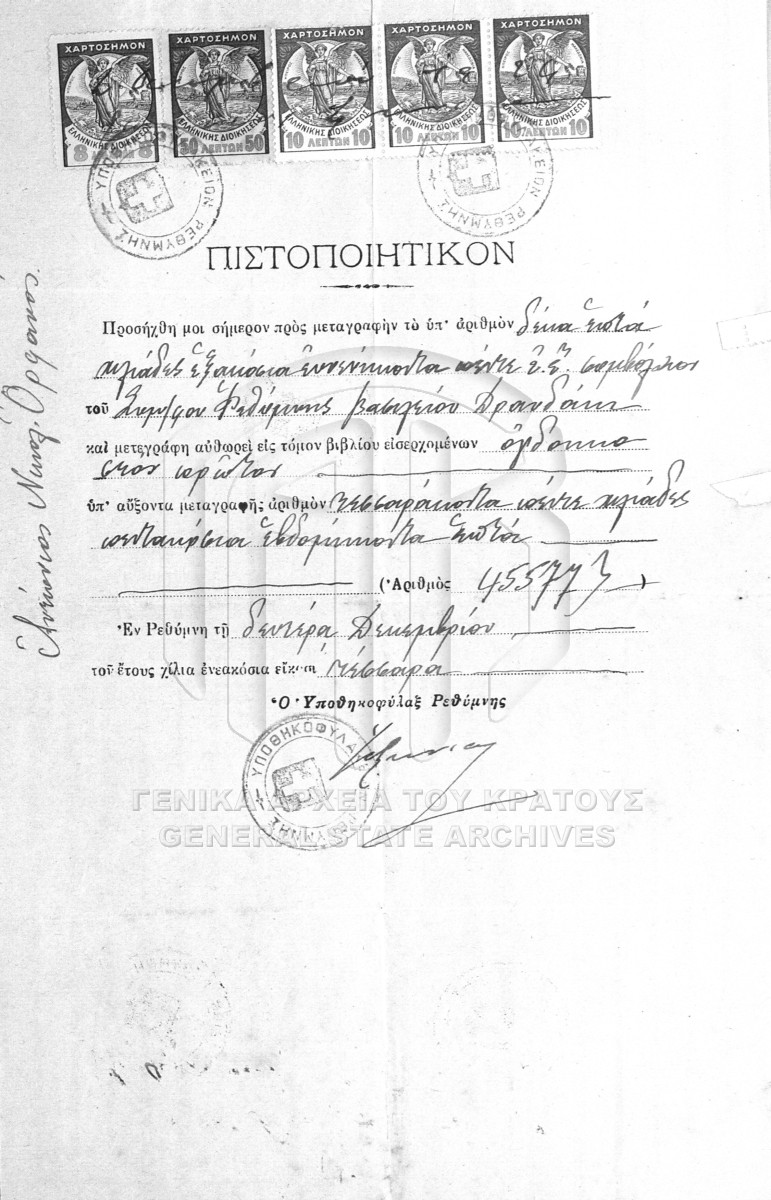 ΧΑΡΤΟΣΗΜΟΝ ΧΑΡΤΟΣΗΜΟΝ ΧΑΡΤΟΣΗΜΟΝ ΧΑΡΤΟΣΗΜΟΝ ΧΑΡΤΟΣΗΜΟΝ
ΕΛΛΗΝΙΚΗΣ ΔΙΟΙΚΗΣΕΩΣ ΕΛΛΗΝΙΚΗΣ ΔΙΟΙΚΗΣΕΩΣ ΕΛΛΗΝΙΚΗΣ ΔΙΟΙΚΗΣΕΩΣ ΕΛΛΗΝΙΚΗΣ ΔΙΟΙΚΗΣΕΩΣ ΕΛΛΗΝΙΚΗΣ ΔΙΟΙΚΗΣΕΩΣ
8 ΛΕΠΤΩΝ 8 50 ΛΕΠΤΩΝ 50 10 ΛΕΠΤΩΝ 10 10 ΛΕΠΤΩΝ 10 10 ΛΕΠΤΩΝ 10
ΠΙΣΤΟΠΟΙΗΤΙΚΟΝ
Προσήχθη μοι σήμερον πρὸς μεταγραφὴν τὸ ὑπ' ἀριθμὸν δέκα ἑπτά
χιλιάδες ἑξακόσια ἐννενήκοντα πέντε ἔ.ἔ. συμβόλαιον
τοῦ Συμ/φου Ῥεθύμνης Βασιλείου Δρανδάκη
καὶ μετεγράφη αὐθωρεὶ εἰς τόμον βιβλίου εἰσερχομένων ὀγδοηκο
στὸν πρῶτον
ὑπ' αὔξοντα μεταγραφῆς ἀριθμὸν τεσσαράκοντα πέντε χιλιάδες
πεντακόσια ἑβδομήκοντα ἑπτά
(Ἀριθμὸς 45577)
Ἐν Ρεθύμνῃ τῇ δευτέρᾳ Δεκεμβρίου
τοῦ ἔτους χίλια ἐνεακόσια εἴκοσι τέσσαρα
Ὁ Ὑποθηκοφύλαξ Ρεθύμνης
ΥΠΟΘΗΚΟΦΥΛΑΚΕΙΟΝ ΡΕΘΥΜΝΗΣ
ΓΕΝΙΚΑ ΑΡΧΕΙΑ ΤΟΥ ΚΡΑΤΟΥΣ
GENERAL STATE ARCHIVES